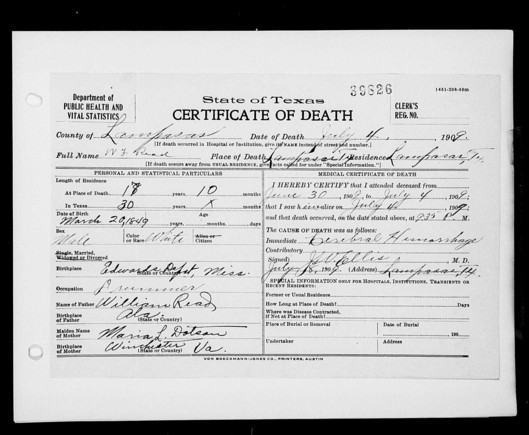 39626
1451-308-40m
Department of
PUBLIC HEALTH AND
VITAL STATISTICS
State of Texas
CERTIFICATE OF DEATH
CLERK'S
REG. NO.
County of Lampasas Date of Death July 4, 1909.
[If death occurred in Hospital or Institution, give its NAME instead of street and number.]
Full Name Read Place of Death Lampasas Residence Lampasas, Tx.
[If death occurs away from USUAL RESIDENCE, give facts called for under "Special Information."]
PERSONAL AND STATISTICAL PARTICULARS
Length of Residence
At Place of Death, 18 years, 10 months
In Texas 30 years X months
Date of Birth Age
March 20, 1849 years, months, days
Sex Male Color or Race White Alien or Citizen
Single, Married,
Widowed or Divorced
Birthplace Edwards Depot, Miss.
(State or Country)
Occupation Drummer
Name of Father William Read
Birthplace of Father Ala.
(State or Country)
Maiden Name of Mother Maria L. Dotson
Birthplace of Mother Winchester Va.
(State or Country)
MEDICAL CERTIFICATE OF DEATH
I HEREBY CERTIFY that I attended deceased from
June 30, 1909, to July 4, 1909;
that I saw h alive on July 4, 1909;
and that death occurred, on the date stated above, at P. M.
The CAUSE OF DEATH was as follows:
Immediate Cerebral Hemorrhage
Contributory
Signed Ellis, M. D.
July 1909, (Address) Lampasas, Tx.
SPECIAL INFORMATION ONLY FOR HOSPITALS, INSTITUTIONS, TRANSIENTS OR
RECENT RESIDENTS:
Former or Usual Residence
How Long at Place of Death? Days
Where was Disease Contracted,
If Not at Place of Death?
Place of Burial or Removal Date of Burial
190
Undertaker Address
VON BOECKMANN-JONES CO., PRINTERS, AUSTIN